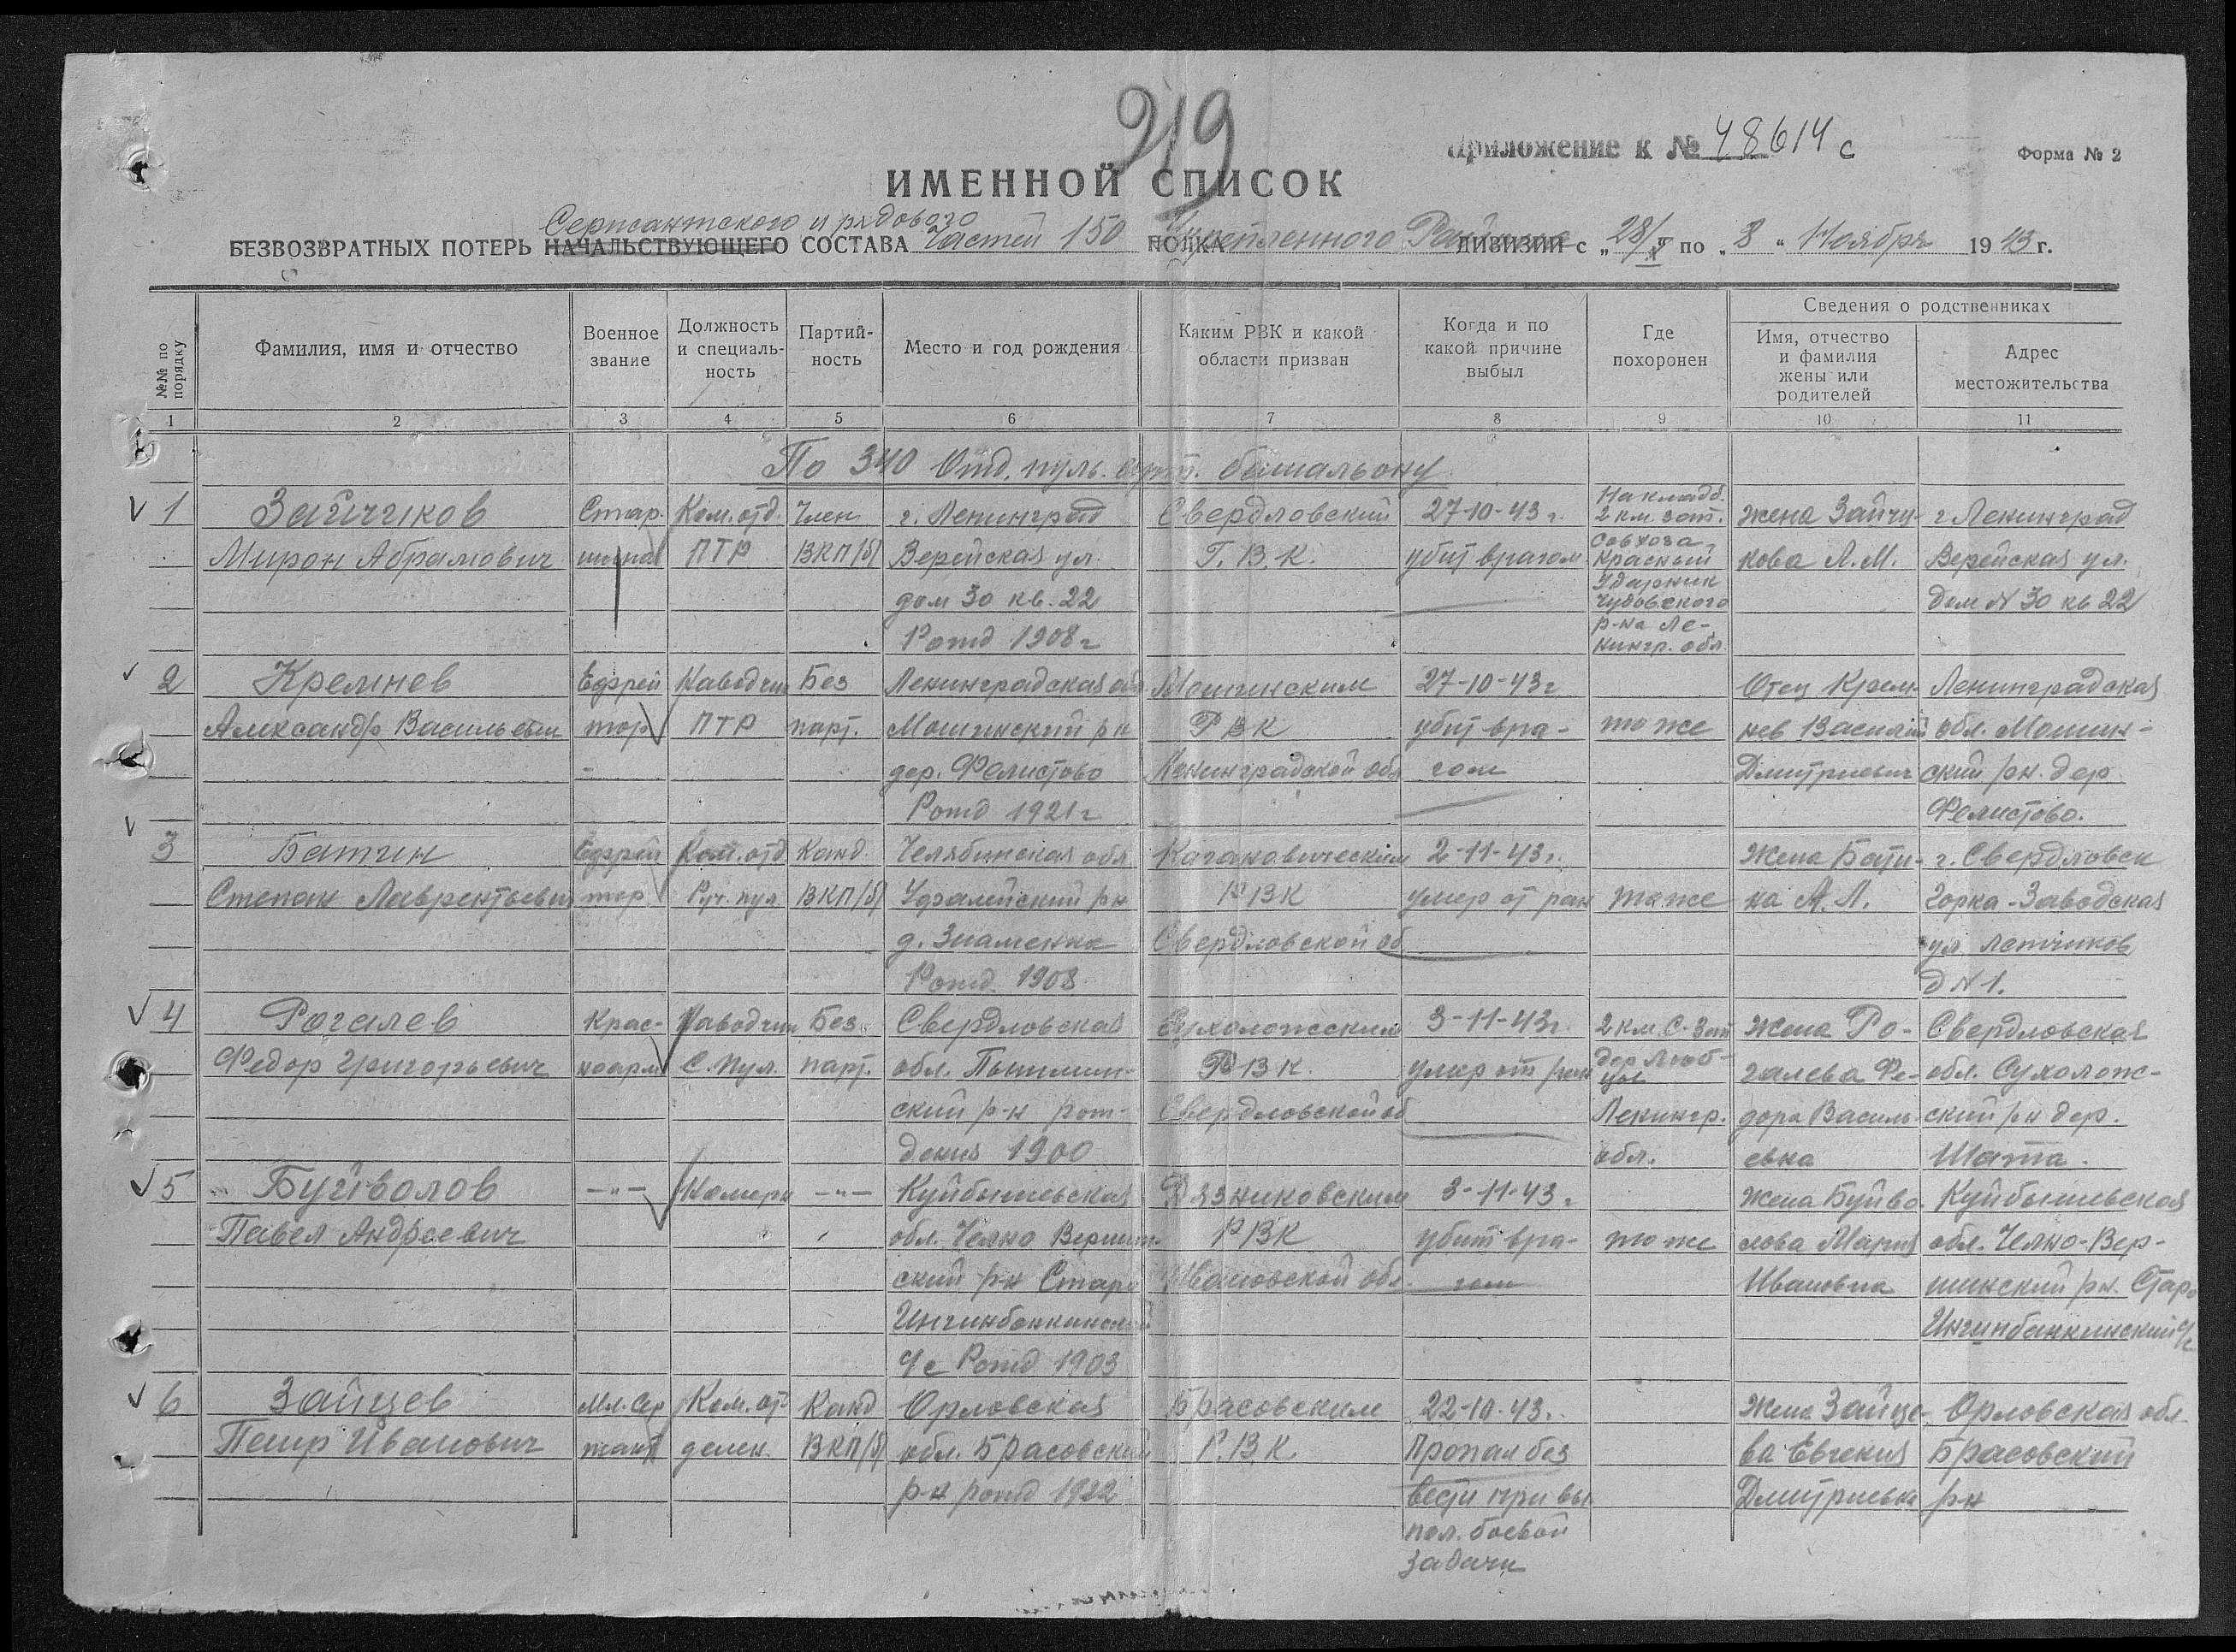 219
Приложение к № 48614 с
Форма № 2
ИМЕННОЙ СПИСОК
Сержантского и рядового
БЕЗВОЗВРАТНЫХ ПОТЕРЬ НАЧАЛЬСТВУЮЩЕГО СОСТАВА частей 150 ПОЛКА Укрепленного Района ДИВИЗИИ с „28/X по „3“ Ноября 1943 г.
№№ по порядку
Фамилия, имя и отчество
Военное звание
Должность и специаль-ность
Партий-ность
Место и год рождения
Каким РВК и какой области призван
Когда и по какой причине выбыл
Где похоронен
Сведения о родственниках
Имя, отчество и фамилия жены или родителей
Адрес местожительства
1 2 3 4 5 6 7 8 9 10 11
По 340 Отд. пуль. арт. батальону
1 Зайчиков Стар. Ком. отд. Член г. Ленинград Свердловский 27-10-43 г. На кладб. 2 км. зап. жена Зайчи- г Ленинград
Мирон Абрамович шина ПТР ВКП/б/ Верейская ул. Г.В.К. убит врагом совхоза Красный кова Л.М. Верейская ул.
дом 30 кв. 22 Ударник Чудовского дом N 30 кв 22
Рожд 1908 г р-на Ле-нингр. обл.
2 Кремнев Ефрей Наводчик Без Ленинградская об Мошинским 27-10-43 г Отец Крем- Ленинградская
Александр Васильевич тор ПТР парт. Мошинский р-н РВК убит вра- то же нев Василий обл. Мошин-
дер. Фелистово Ленинградской обл гом Дмитриевич ский р-н. дер
Рожд 1921 г Фелистово.
3 Батин Ефрей Ком. отд Канд Челябинская обл Кагановическим 2-11-43 г. Жена Бати- г. Свердловск
Степан Лаврентьевич тор Руч. пул ВКП/б/ Уфалейский р-н РВК умер от ран то же на А. Л. Горка-Заводская
д. Знаменка Свердловской об ул летчиков
Рожд. 1908 д N 1.
4 Рогалев Крас- Наводчик Без. Свердловская Сухоложским 3-11-43 г. 2 км. С-Зап Жена Ро- Свердловская
Федор Григорьевич ноарм С. пул. парт. обл. Пышмин- РВК. умер от ран дер Люб- галева Фе- обл. Сухолож-
ский р-н рож- Свердловской об Ленингр. дора Василь- ский р-н дер.
дения 1900 обл. евна Шата.
5 Буйволов —"— Номерн —"— Куйбышевская Вязниковским 3-11-43 г Жена Буйво- Куйбышевская
Павел Андреевич обл. Челно Вершин- РВК убит вра- то же лова Мария обл. Челно-Вер-
ский р-н Старо Ивановской обл. гом Ивановна шинский р-н. Старо
с/с Рожд 1903
6 Зайцев Мл. Сер Ком. от Канд Орловская Брасовским 22-10-43. Жена Зайце- Орловская обл.
Петр Иванович жант делен. ВКП/б/ обл. Брасовский Р.В.К. Пропал без ва Евгения Брасовский
р-н рожд 1922 вести при вы Дмитриевна р-н
пол. боевой
задачи